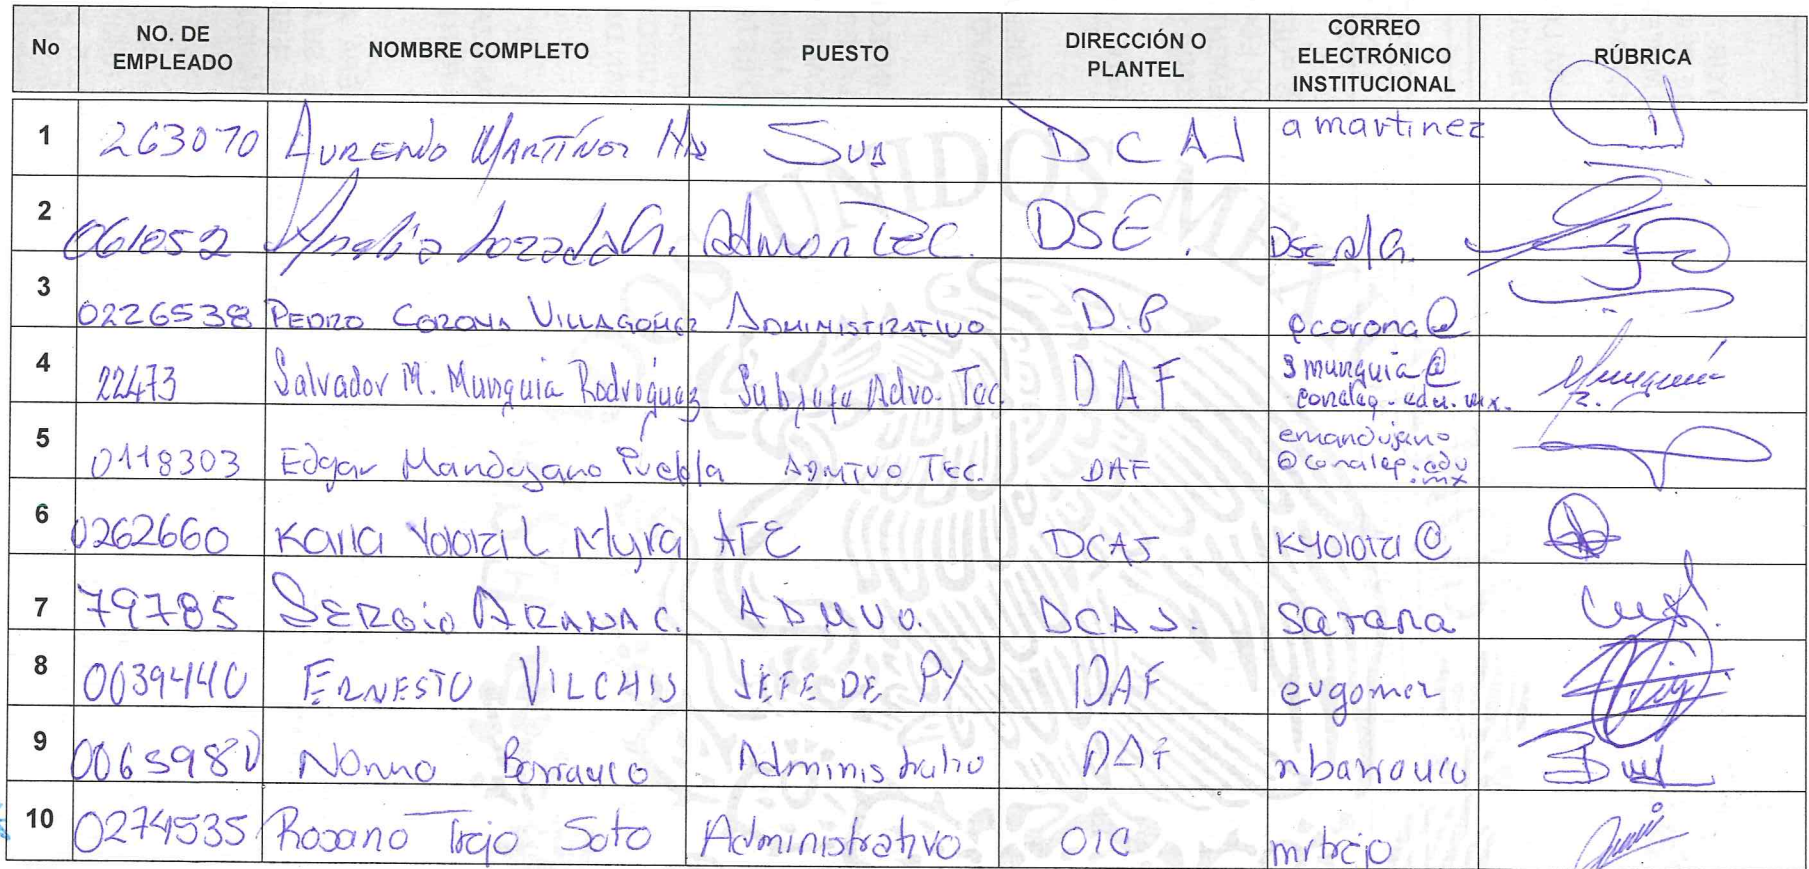 No NO. DE EMPLEADO NOMBRE COMPLETO PUESTO DIRECCIÓN O PLANTEL CORREO ELECTRÓNICO INSTITUCIONAL RÚBRICA
1 263070 AURENDO MARTÍNEZ SUB DCAJ amartinez
2 061052 Lozada G. Admon Tec. DSE.
3 0226538 PEDRO CORONA VILLAGOMEZ ADMINISTRATIVO D.P pcorona@
4 22473 Salvador M. Munguia Rodriguez Subjefe Advo. Tec DAF smunguia@
conalep.edu.mx.
5 0118303 Edgar Mandujano Puebla ADMTVO TEC. DAF emandujano
@conalep.edu
.mx
6 0262660 Karla Yolotzi L Myra ATE DCAJ KYolotzi@
7 79785 SERGIO ARANA C. ADMVO. DCAJ. sarana
8 0039440 ERNESTO VILCHIS JEFE DE PY DAF evgomez
9 0065980 Barranco Administrativo DAF nbarranco
10 0274535 Trejo Soto Administrativo OIC mrtrejo
UNIDOS MEX